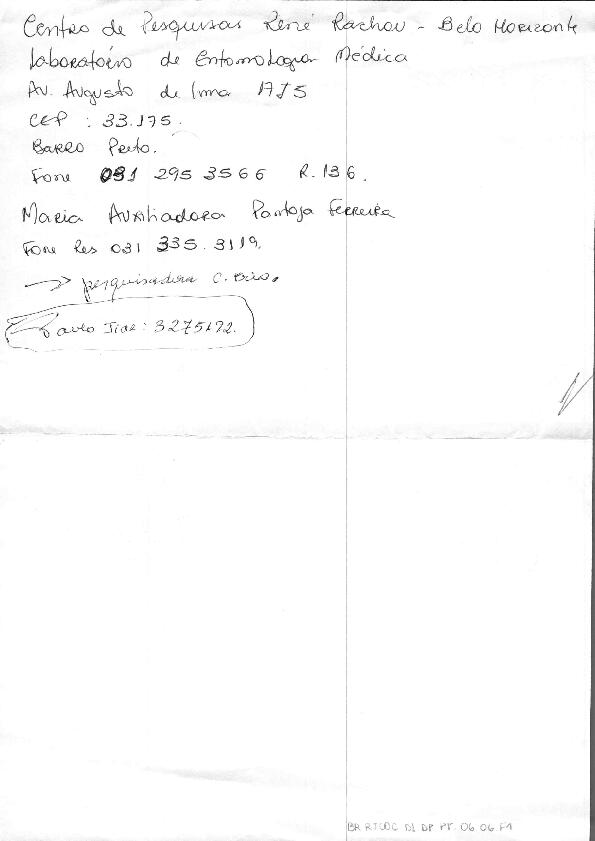 Centro de Pesquisas René Rachou - Belo Horizonte
Laboratório de Entomologia Médica
Av. Augusto de Lima 1715
CEP : 33.175.
Barro Preto.
Fone 031 295 3566 R. 136.
Maria Auxiliadora Pantoja Ferreira
Fone Res 031 335.3119.
→ pesquisadora C.
3275172.
BR RJCOC D1 DP PT. 06.06.F1